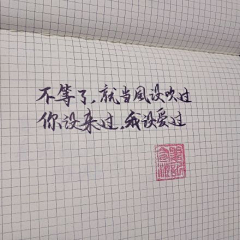 不等了，就当风没吹过
你没来过，我没爱过